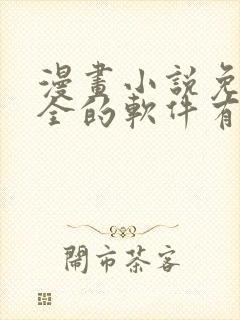 漫畫小說免
全的軟件有
鬧市茶客